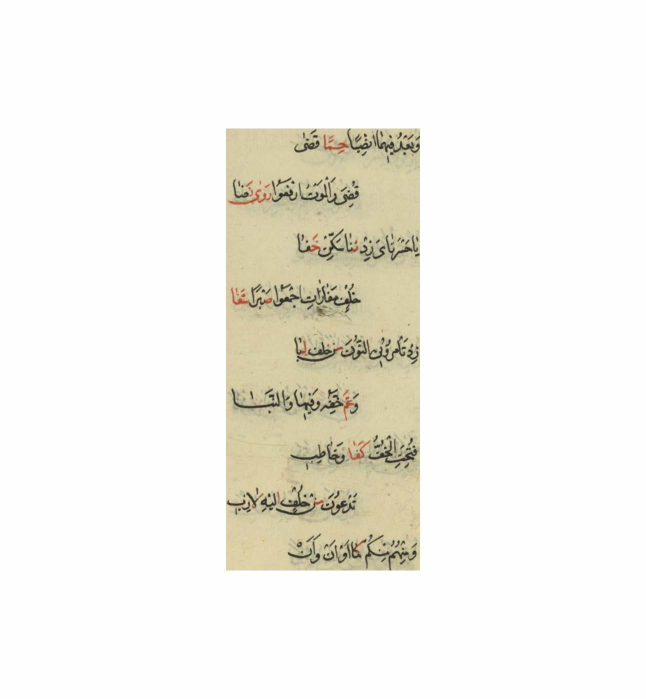 وَبَعْدُ فِيهَا انْصِبًا حِمًا قَضَى
قُضِيَ وَالْمَوْتُ ارْفَعُوا رَوَى فَضَا
يَا حَسْرَتَايَ زِدْ ثَنَا سَكِّنْ خَفَا
خُلْفٌ مَفَازَاتِ اجْمَعُوا صَبْرًا شَفَا
زِدْ تَأْمُرُونِي النُّونَ مِنْ خُلْفٍ لَبَا
وَعَمَّ خِفُّهُ وَفِيهَا وَالنَّبَا
فُتِحَتِ الْخِفُّ كَفَا وَخَاطِبِ
تَدْعُونَ مِنْ خُلْفٍ إِلَيْهِ لَازِبِ
وَمِنْهُمُ مِنْكُمْ كَمَا أَوْ أَنْ وَأَنْ